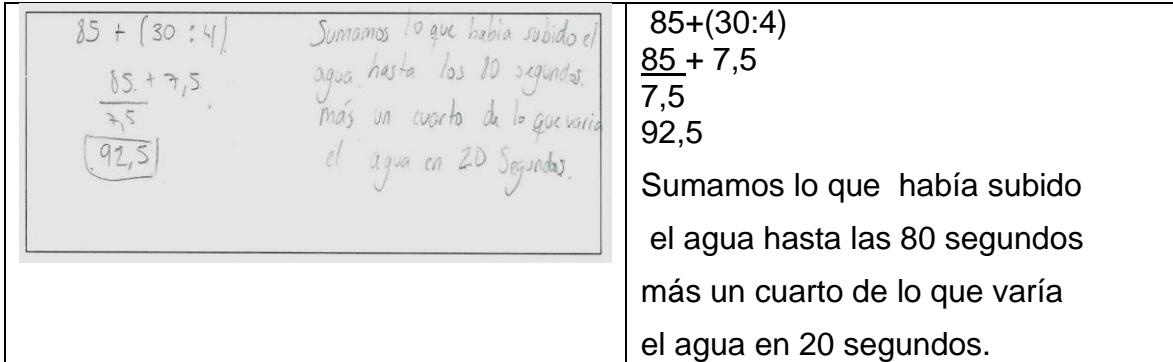 85 + (30 : 4)
85. + 7,5
7,5
92,5
Sumamos lo que había subido el
agua hasta los 80 segundos.
más un cuarto de lo que varía
el agua en 20 Segundos.
85+(30:4)
85 + 7,5
7,5
92,5
Sumamos lo que había subido
el agua hasta las 80 segundos
más un cuarto de lo que varía
el agua en 20 segundos.